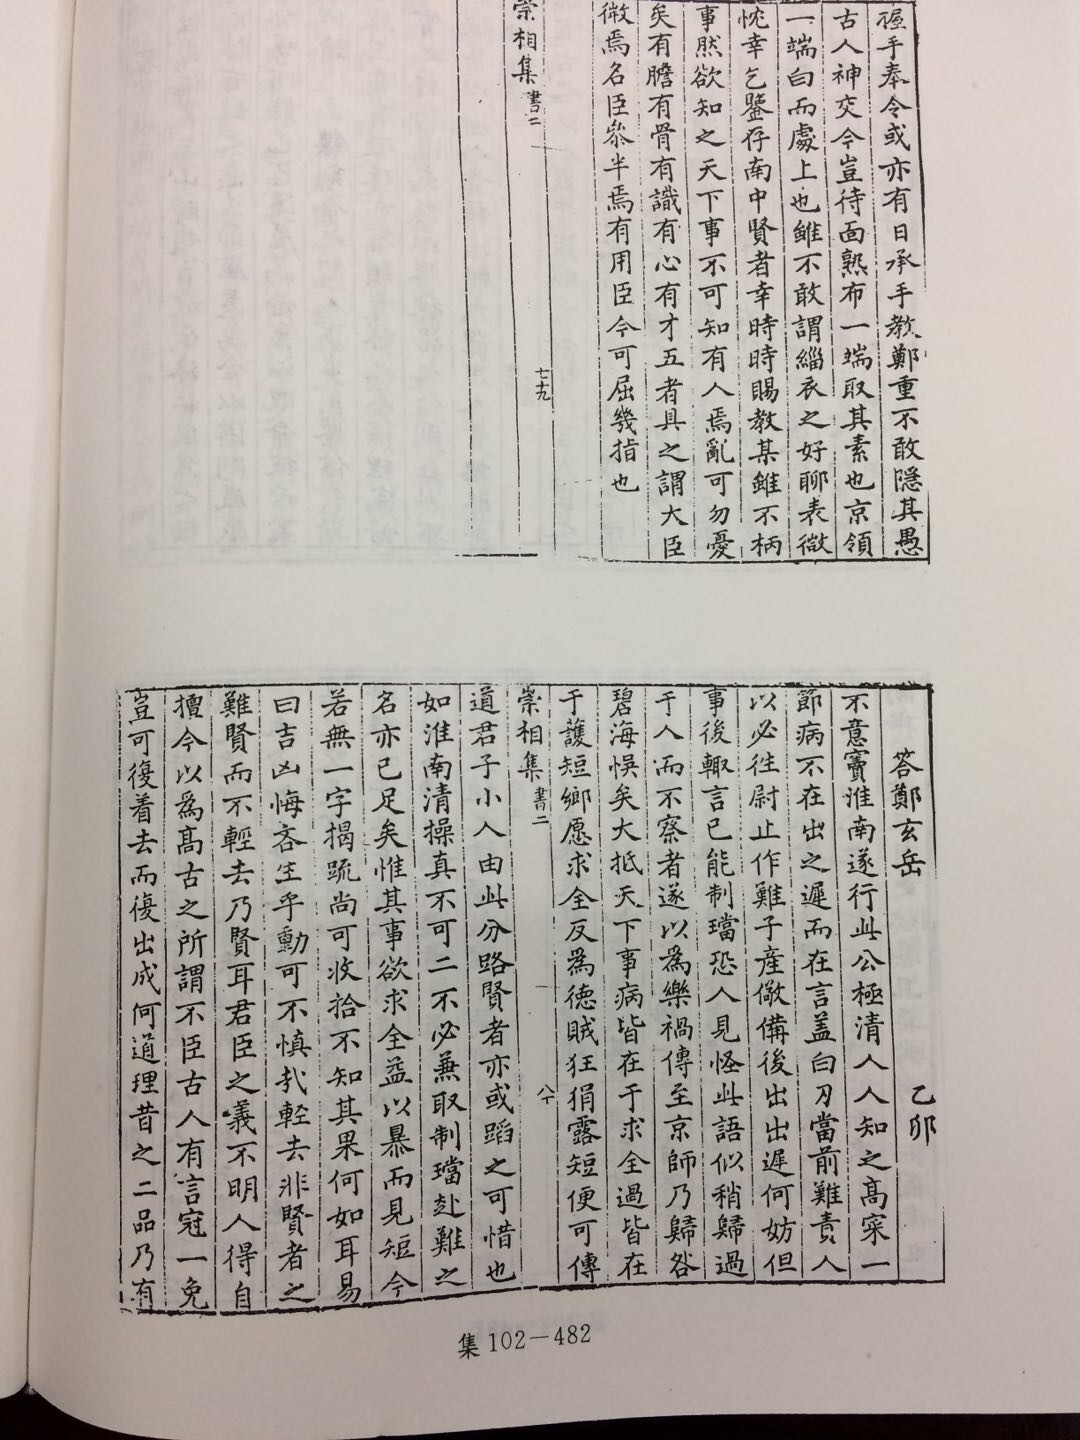 握手奉令或亦有日承手教鄭重不敢隱其愚
古人神交今豈待面熟布一端取其素也京領
一端白而處上也雖不敢謂緇衣之好聊表微
忱幸乞鑒存南中賢者幸時時賜教某雖不柄
事然欲知之天下事不可知有人焉亂可勿憂
矣有膽有骨有識有心有才五者具之謂大臣
微焉名臣叅半焉有用臣今可屈幾指也
崇相集 書二
七十九
答鄭玄岳 乙卯
不意竇淮南遂行此公極清人人知之高寀一
節病不在出之遲而在言盖白刃當前難責人
以必徃尉止作難子産儆備後出出遲何妨但
事後輙言已能制璫恐人見怪此語似稍歸過
于人而不察者遂以為樂禍傳至京師乃歸咎
碧海悞矣大抵天下事病皆在于求全過皆在
于護短鄉愿求全反為德賊狂狷露短便可傳
崇相集 書二
八十
道君子小人由此分路賢者亦或蹈之可惜也
如淮南清操真不可二不必兼取制璫赴難之
名亦已足矣惟其事欲求全益以暴而見短今
若無一字揭疏尚可收拾不知其果何如耳易
曰吉凶悔吝生乎動可不慎㢤輕去非賢者之
難賢而不輕去乃賢耳君臣之義不明人得自
擅今以為高古之所謂不臣古人有言冠一免
豈可復着去而復出成何道理昔之二品乃有
集 102－482